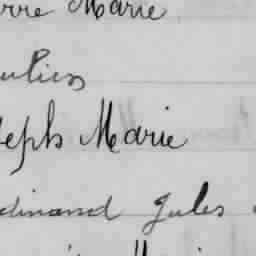 erre Marie
ulien
seph Marie
dinand Jules